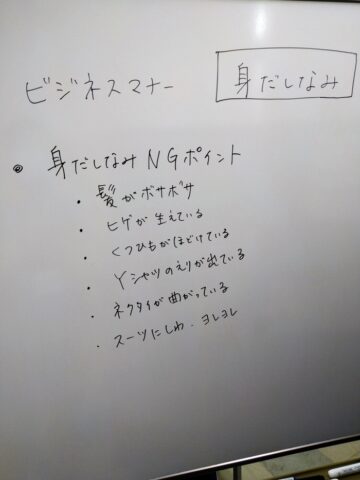 ビジネスマナー
身だしなみ
◎ 身だしなみNGポイント
・髪がボサボサ
・ヒゲが生えている
・くつひもがほどけている
・Yシャツのえりが出ている
・ネクタイが曲がっている
・スーツにしわ．ヨレヨレ